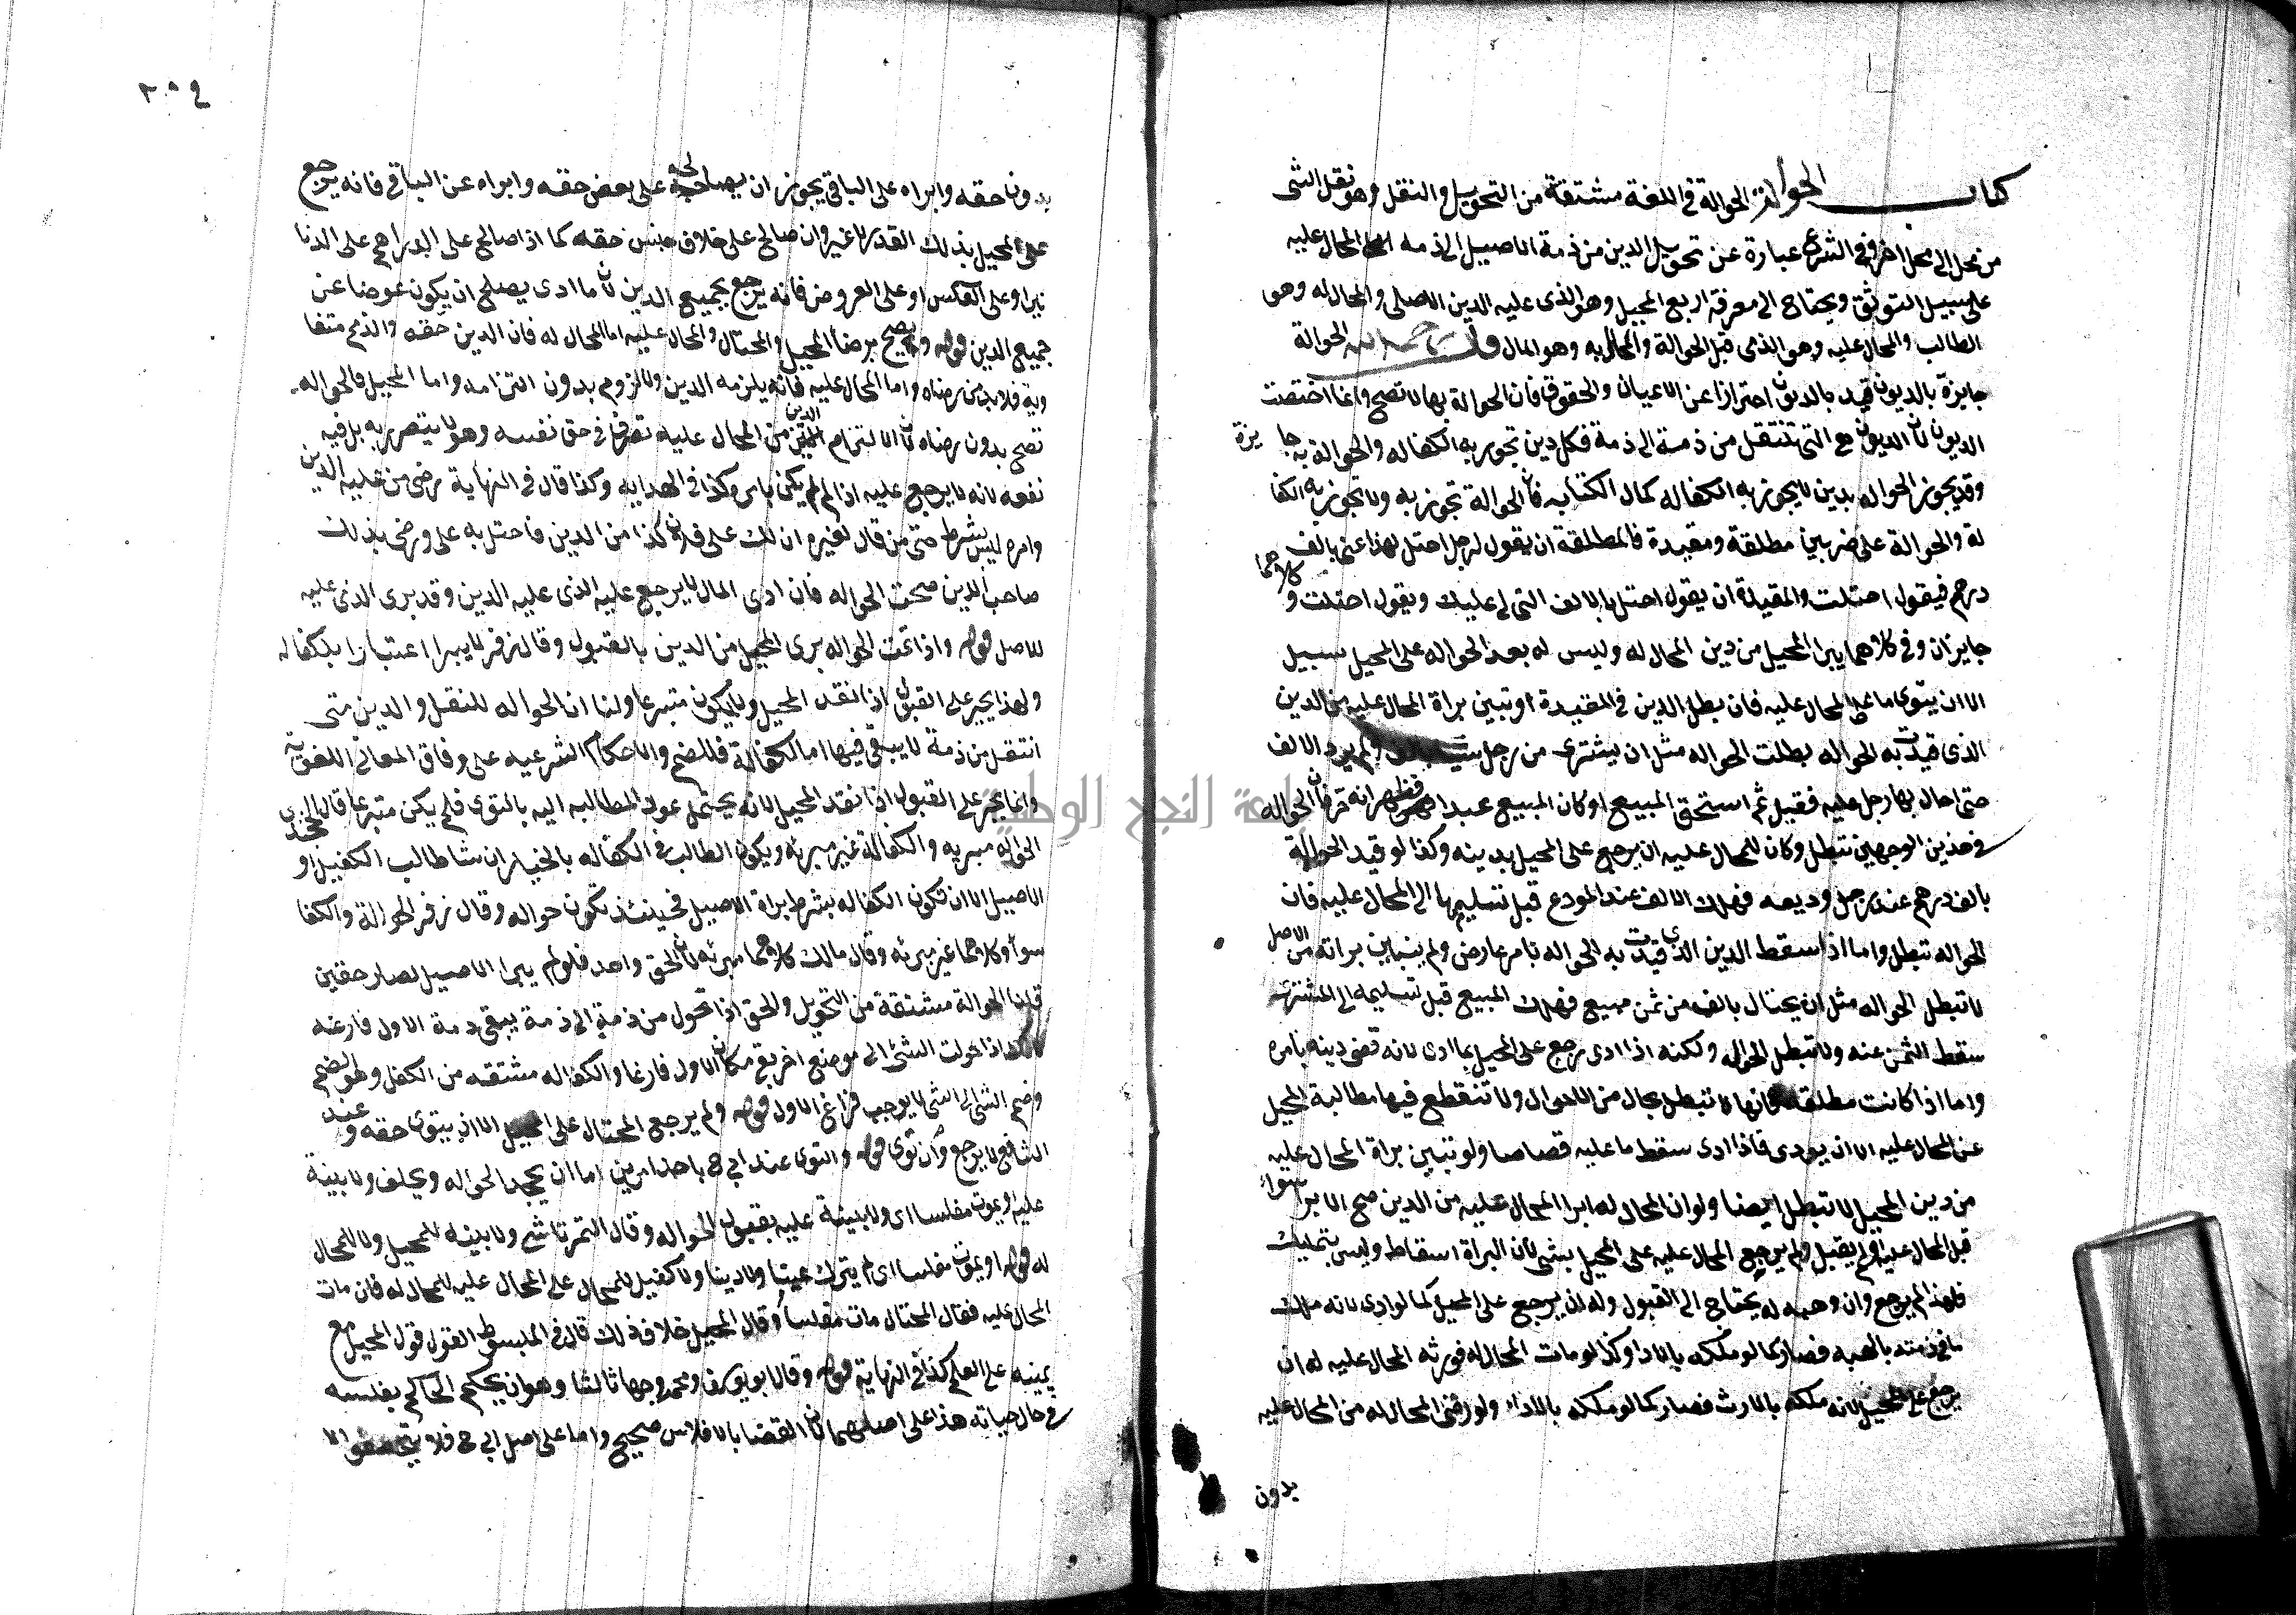 كتاب الحوالة الحوالة في اللغة مشتقة من التحويل والنقل وهو نقل الشي
من محل الى محل اخر وفي الشرع عبارة عن تحويل الدين من ذمة الاصيل الى ذمة المحال عليه
على سبيل التوثق ويحتاج الى معرفة اربع المحيل وهو الذي عليه الدين الاصلي والمحال له وهو
الطالب والمحال عليه وهو الذي قبل الحوالة والمحال به وهو المال قال رحمه الله الحوالة
جايزة بالديون قيد بالديون احترازا عن الاعيان والحقوق فان الحوالة بها لا تصح وانما اختصت
الديون لان الديون هي التي تنتقل من ذمة الى ذمة فكل دين تجوز به الكفاله والحوالة به جايزة
وقد يجوز الحواله بدين لا يجوز به الكفاله كمال الكتابه فان الحوالة تجوز به ولا تجوز به الكفا
لة والحوالة على ضربين مطلقة ومقيدة فالمطلقة ان يقول لرجل احتل لهذا عني بالف
درهم فيقول احتلت والمقيدة ان يقول احتل بالالف التي لي عليك ويقول احتلت وكلاهما
جايزان وفي كلاهما يبرا المحيل من دين المحال له وليس له بعد الحواله على المحيل سبيل
الا ان يتوى ما على المحال عليه فان بطل الدين في المقيدة او تبين براة المحال عليه من الدين
الذي قيدت به الحواله بطلت الحواله مثل ان يشتري من رجل ولم يرد الالف
حتى احال بها رجل عليه فقبل ثم استحق المبيع او كان المبيع عبدا فظهر انه حر فان الحواله
في هذين الوجهين تبطل وكان للمحال عليه ان يرجع على المحيل بدينه وكذا لو قيد الحوالة
بالف درهم عند رجل وديعه فهلك الالف عند المودع قبل تسليمها الى المحال عليه فان
الحواله تبطل واما اذا سقط الدين الذي قيدت به الحواله بامر عارض ولم يتباين براته من الاصل
لا تبطل الحواله مثل ان يحتال بالف من ثمن مبيع فهلك المبيع قبل تسليمه الى المشتري
سقط الثمن عنه ولا تبطل الحواله ولكنه اذا ادى رجع على المحيل بما ادى لانه قضى دينه بامره
واما اذا كانت مطلقة فانها لا تبطل بحال من الاحوال ولا تنقطع فيها مطالبة المحيل
عن المحال عليه الا ان يودي فاذا ادى سقط ما عليه قصاصا ولو تبين براة المحال عليه
من دين المحيل لا تبطل ايضا ولو ان المحال له ابرا المحال عليه من الدين صح الابرا سواء
قبل المحال عليه او لم يقبل ولم يرجع المحال عليه على المحيل بشي لان البراة اسقاط وليس بتمليك
فلهذا لم يرجع وان وهبه له يحتاج الى القبول وله ان يرجع على المحيل كما لو ادى لانه ملك
ما في ذمته بالهبه فصار كما لو ملكه بالادا وكذا لو مات المحال له فورثه المحال عليه له ان
يرجع على المحيل لانه ملكه بالارث فصار كما لو ملكه بالاداء ولو رضي المحال له من المحال عليه
بدون
بدون حقه وابراه على الباقي يجوز ان يصالحه على بعض حقه وابراه عن الباقي فانه يرجع
على المحيل بذلك القدر لا غير وان صالح على خلاف جنس حقه كما اذا صالح على الدراهم على الدنا
نيرا وعلى العكس او على العروض فانه يرجع بجميع الدين لان ما ادى يصلح ان يكون عوضا عن
جميع الدين قوله ويصح برضا المحيل والمحتال والمحال عليه اما المحال له فان الدين حقه والذمم متفا
وتة فلا بد من رضاه واما المحال عليه فانه يلزمه الدين ولا لزوم بدون التزامه واما المحيل فالحواله
تصح بدون رضاه لان الالتزام الدين من المحال عليه تصرف في حق نفسه وهو لا يتضرر به بل فيه
نفعه لانه لا يرجع عليه اذا لم يكن بامره كذا في الهدايه وكذا قال في النهاية رضى من عليه الدين
وامره ليس بشرط حتى من قال لغيره ان لك على فلان كذا من الدين فاحتل به على ورضي بذلك
صاحب الدين صحت الحواله فان ادى المال لا يرجع عليه الذي عليه الدين وقد بري الذي عليه
الاصل قوله واذا تمت الحواله بري المحيل من الدين بالقبول وقال زفر لا يبرا اعتبارا بالكفاله
ولهذا يجبر على القبول اذا نقد المحيل ولا يكون متبرعا ولنا ان الحواله للنقل والدين متى
انتقل من ذمة لا يبقى فيها اما الكفالة فللضم والاحكام الشرعيه على وفاق المعاني اللغوية
وانما يجبر على القبول اذا نقد المحيل لانه يحتمل عود المطالبه اليه بالتوى فلم يكن متبرعا قال الخجندي
الحواله مبريه والكفالة غير مبرئه ويكون الطالب في الكفاله بالخيار ان شا طالب الكفيل او
الاصيل الا ان تكون الكفاله بشرط براة الاصيل فحينئذ تكون حواله وقال زفر الحوالة والكفا
سوا وكلاهما غير مبرئه وقال مالك كلاهما مبرئه لان الحق واحد فلو لم يبرا الاصيل لصار حقين
قلنا الحوالة مشتقة من التحويل والحق اذا تحول من ذمة الى ذمة يبقى ذمة الاول فارغه
كالشي اذا حولت الشئ الى موضع اخر يبقى مكان الاول فارغا والكفاله مشتقه من الكفل وهو الضم
وضم الشي الى الشي لا يوجب فراغ الاول قوله ولم يرجع المحتال على المحيل الا ان يتوى حقه وعند
الشافعي لا يرجع وان توى قوله والتوى عند ابي ح باحد امرين اما ان يجحد الحواله ويحلف ولا بينة
عليه او يموت مفلسا اي ولا بينة عليه بقبول الحواله وقال التمرتاشي ولا بينه للمحيل ولا للمحال
له قوله او يموت مفلسا اي لم يترك عينا ولا دينا ولا كفيل للمحال على المحال عليه للمحال له فان مات
المحال عليه فقال المحتال مات مفلسا وقال المحيل خلاف ذلك قال في المبسوط القول قول المحيل مع
يمينه على العلم كذا في النهاية قوله وقال ابو يوسف ومحمد وجها ثالثا وهو ان يحكم الحاكم بفلسه
في حال حياته هذا على اصلهما لان القضا بالافلاس صحيح واما على اصل ابي ح فلا يتحقق الا
جامعة النجاح الوطنية